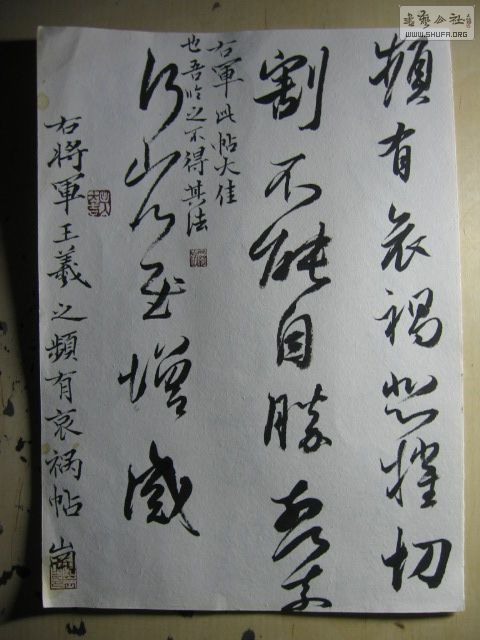 書藝公社
WWW.SHUFA.ORG
頻有哀禍悲摧切
割不能自勝奈何奈
何省慰增感
右軍此帖大佳
也吾临之不得其法
右將軍王羲之頻有哀祸帖